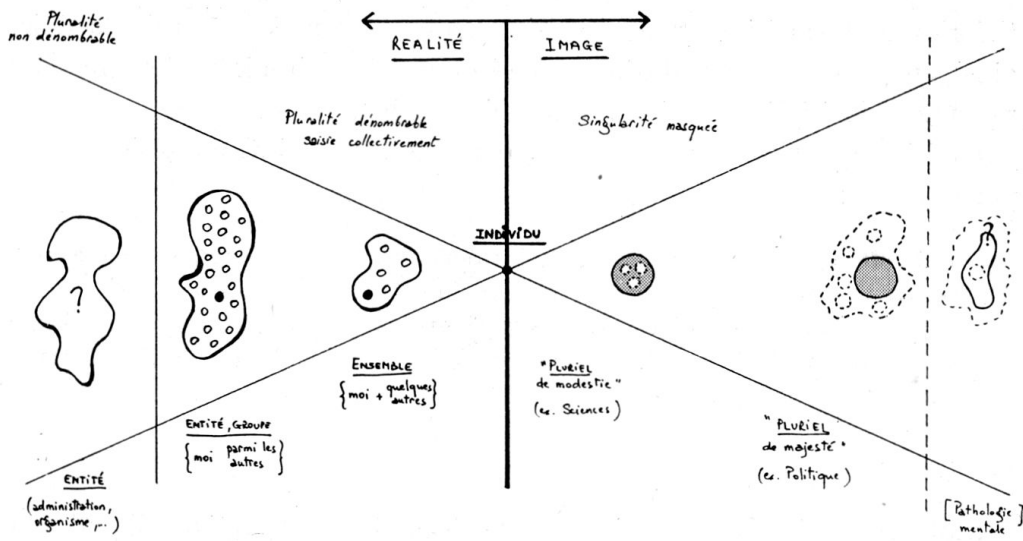 Pluralité
non dénombrable
REALITÉ
IMAGE
Pluralité dénombrable
saisie collectivement
Singularité masquée
INDIVIDU
?
?
ENSEMBLE
{moi + quelques
autres}
"PLURIEL
de modestie"
(ex. Sciences)
ENTITÉ, GROUPE
{moi parmi les
autres}
"PLURIEL
de majesté"
(ex. Politique)
ENTITÉ
(administration,
organisme,...)
[Pathologie
mentale]